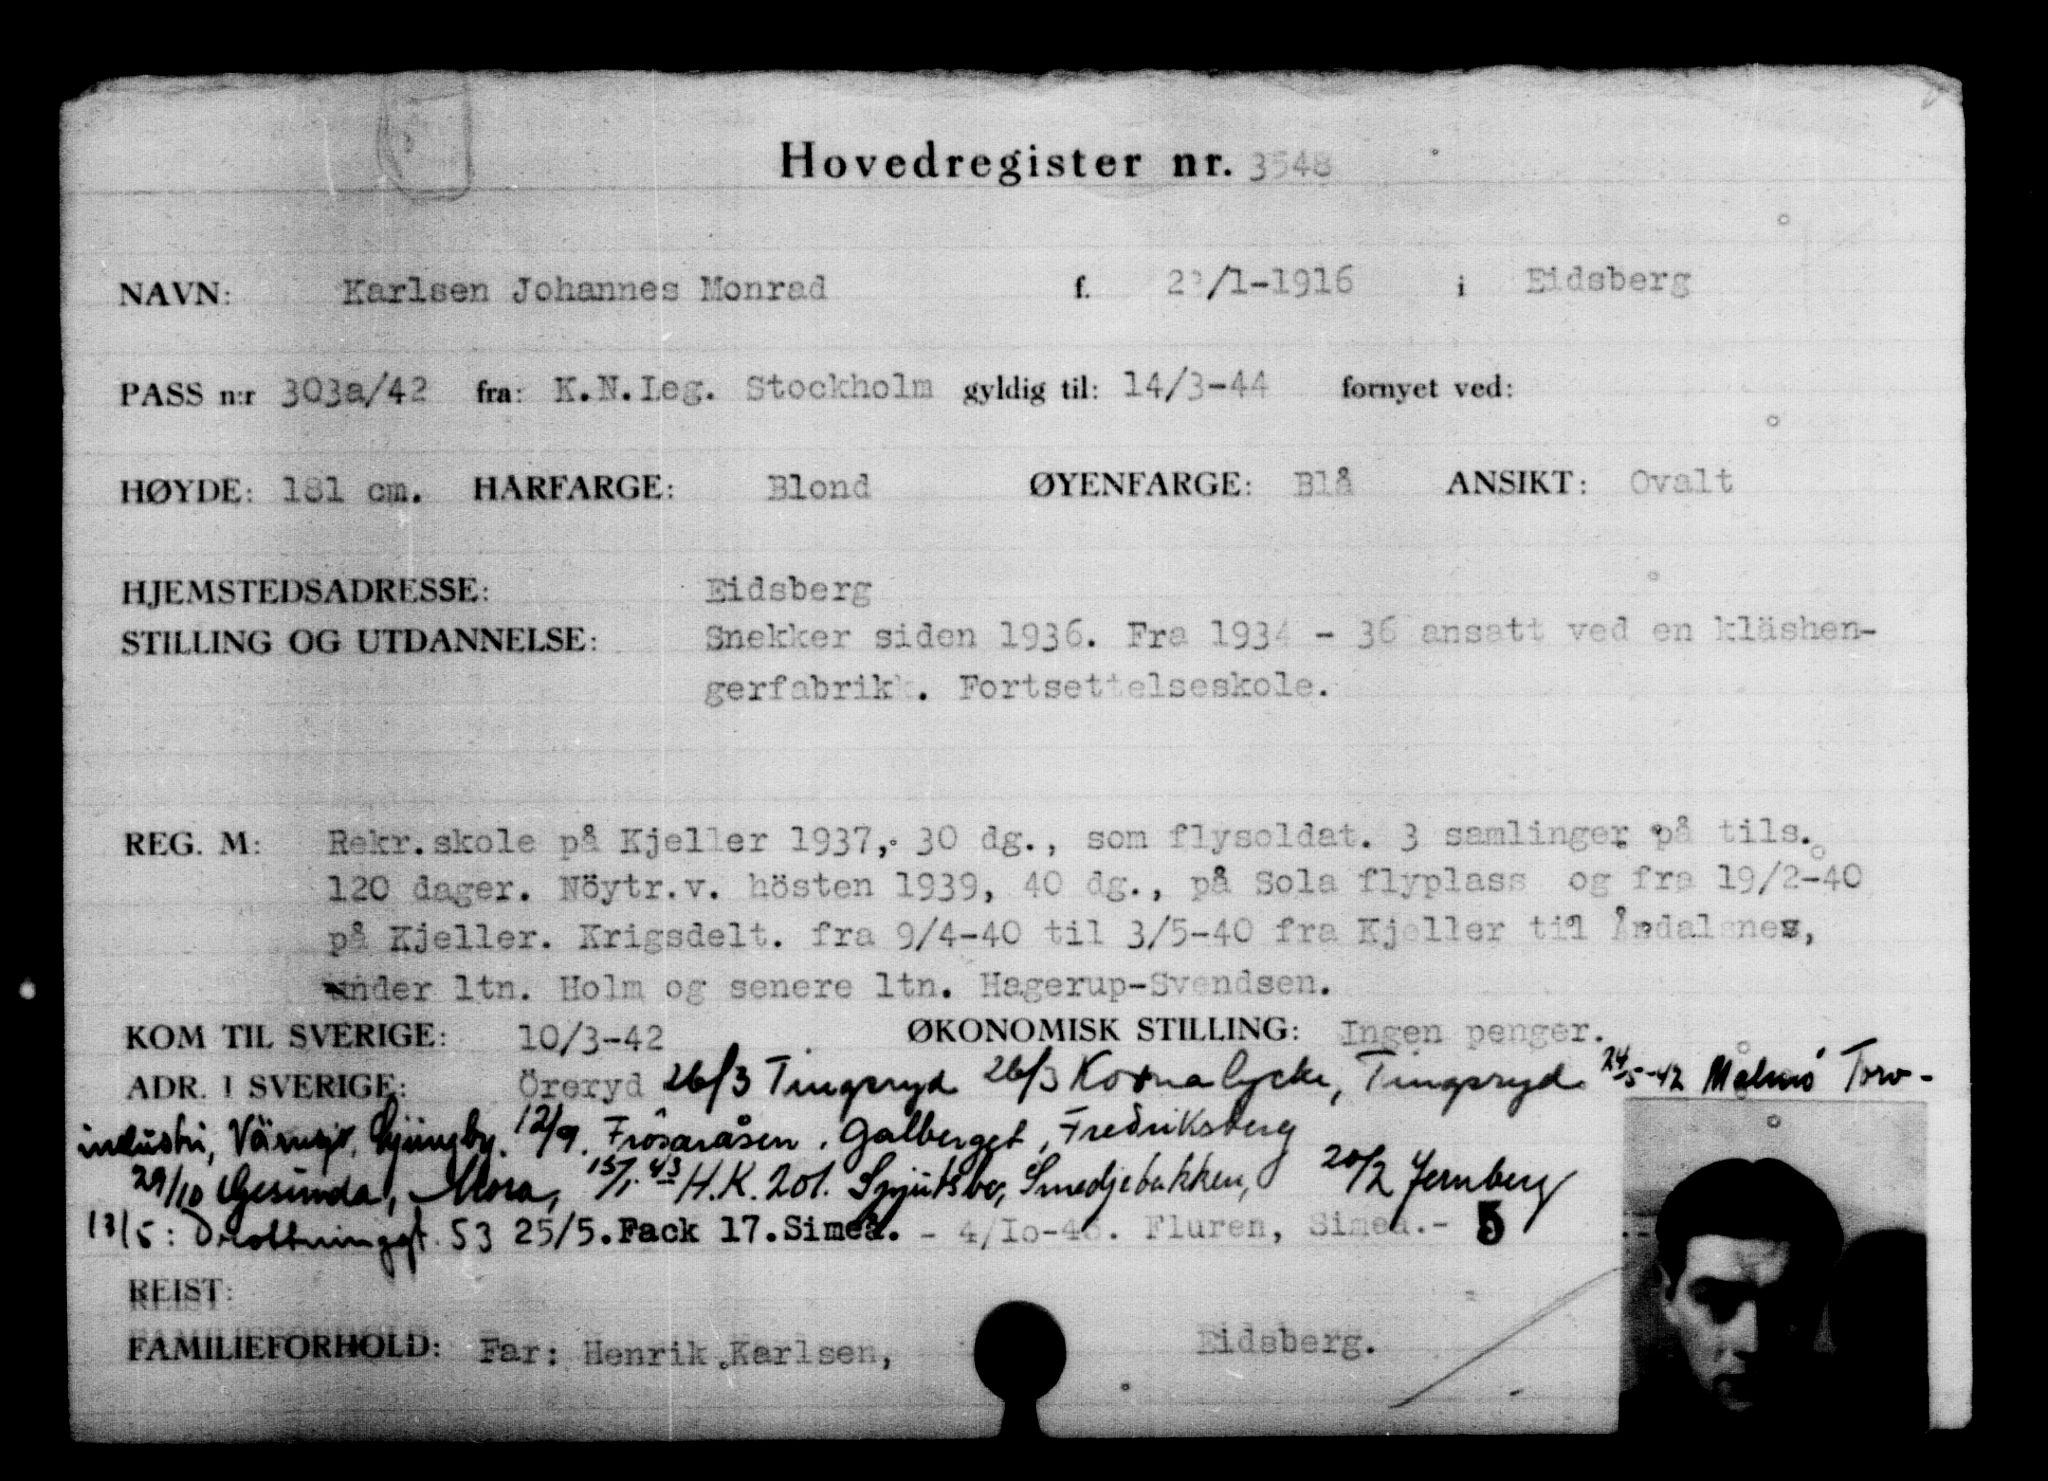 Hovedregister nr. 3548
NAVN: Karlsen Johannes Monrad f. /1-1916 i Eidsberg
PASS n:r 303a/42 fra: K.N.Leg. Stockholm gyldig til: 14/3-44 fornyet ved:
HØYDE: 181 cm. HÅRFARGE: Blond ØYENFARGE: Blå ANSIKT: Ovalt
HJEMSTEDSADRESSE: Eidsberg
STILLING OG UTDANNELSE: Snekker siden 1936. Fra 1934 - 36 ansatt ved en kläshen-
gerfabrikk. Fortsettelseskole.
REG. M: Rekr.skole på Kjeller 1937, 30 dg., som flysoldat. 3 samlinger på tils.
120 dager. Nöytr.v. hösten 1939, 40 dg., på Sola flyplass og fra 19/2-40
på Kjeller. Krigsdelt. fra 9/4-40 til 3/5-40 fra Kjeller til Åndalsnes,
under ltn. Holm og senere ltn. Hagerup-Svendsen.
KOM TIL SVERIGE: 10/3-42 ØKONOMISK STILLING: Ingen penger.
ADR. I SVERIGE: Öreryd 26/3 Tingsryd 26/3 Tingsryd 24/5-42 Malmö Torv-
industri, Ljungby. 12/9. Frösaråsen, Galberget, Fredriksberg
29/10 Gesunda, Mora, 15/1-43 H.K. 201. Spjutsbo, Smedjebakken, 20/2 Jernberg
13/5: Drottninggt. 53 25/5. Fack 17. Simeå. - 4/10-43. Fluren, Simeå.- 5
REIST:
FAMILIEFORHOLD: Far: Henrik Karlsen, Eidsberg.